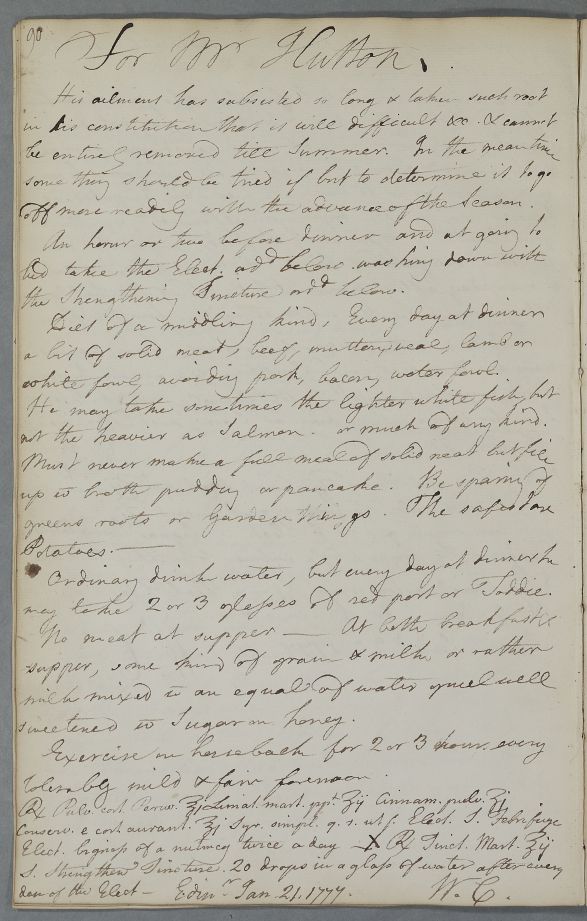 90
For Mr Hutton.
His ailment has subsisted so long & taken such root
in his constitution that it will difficult &c. & cannot
be entirely removed till Summer. In the mean time
some thing should be tried if but to determine it to go
off more readily with the advance of the Season.
An hour or two before dinner and at going to
bed take the Elect. ordd below washing down with
the Strengthening Tincture ordd below.
Diet of a middling kind, Every day at dinner
a bit of solid meat, beef, mutton, veal, lamb or
white fowl, avoiding pork, bacon, water fowl.
He may take sometimes the lighter white fish, but
not the heavier as Salmon. or much of any kind.
Must never make a full meal of solid meat but fill
up wt broth pudding or pancake. Be sparing of
greens roots or Garden things. The safest are
Potatoes.—
Ordinary drink water, but every day at dinner he
may take 2 or 3 glasses of red port or Toddie.
No meat at supper — At both breakfast &
supper, some kind of grain & milk or rather
milk mixed wt an equal of water gruel well
sweetened wt Sugar or honey.
Exercise on horseback for 2 or 3 hours every
tolerably mild & fair forenoon.
℞ Pulv. cort. Peruv. ℥j Limat. mart. ppt. ʒij Cinnam. pulv. ʒj
Conserv. e cort. aurant. ℥j Syr. simpl. q. s. ut f. Elect. S. Febrifuge
Elect. bigness of a nutmeg twice a day — X ℞ Tinct. Mart. ℥ij
S. Strengthen Tincture. 20 drops in a glass of water after every
dose of the Elect — Edinr Jan. 21. 1777. W. C.